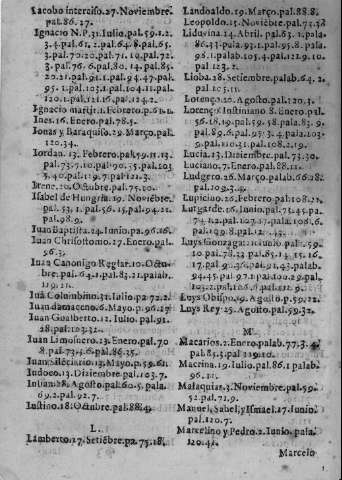 Iacobo interciso. 27. Noviembre.
pal. 86. 27.
Ignacio N. P. 31. Iulio. pal. 59. 1. 2.
3. 4. pal. 61. 2. pal. 64. 8. pal. 65.
3. pal. 70. 20. pal. 71. 19. pal. 72.
3. pal. 76. 6. pal. 80. 14. pal. 85.
20. 21. pal. 91. 1. pal. 94. 47. pal.
95. 1. pal. 103. 1. pal. 104. 11. pal.
120. 1. pal. 121. 16. pal. 124. 2.
Ignacio martir. 1. Febrero. p. 61. 1.
Ines. 16. Enero. pal. 78. 5.
Ionas y Baraquiso. 29. Março. pal.
120. 34.
Iordan. 13. Febrero. pal. 59. 11. 13.
pal. 73. 7. 10. pal. 90. 35. pal. 103
5. 40. pal. 119. 7. pal. 121. 3.
Irene. 20. Octubre. pal. 75. 10.
Isabel de Hungria. 19. Noviembre.
pal. 53. 1. pal. 56. 15. pal. 94. 21.
pal. 98. 9.
Iuan Baptista. 24. Iunio. pa. 96. 16.
Iuan Chrisostomo. 27. Enero. pal.
96. 3.
Iuan Canonigo Reglar. 10. Octu-
bre. pal. 64. 1. pal. 83. 21. palab.
119. 21.
Iuan Columbino. 31. Iulio. pa. 72. 2.
Iuan damaceno. 6. Mayo. p. 96. 19
Iuan Gualberto. 12. Iulio. pal. 91.
28. pal. 103. 32.
Iuan Limosnero. 23. Enero. pal. 70
8. pal. 73. 5. 6. pal. 86. 35.
Iuan Silenciario. 13. Mayo. p. 59. 61.
Iudoco. 13. Diciembre. pal. 103. 7.
Iulian. 28. Agosto. pal. 60. 5. pala.
69. 2. pal. 92. 7.
Iustino. 18. Octubre. pal. 88. 4.
L.
Lamberto. 17. Setiẽbre. pa. 75. 18.
Landoaldo. 19. Março. pal. 88. 8.
Leopoldo. 15. Noviẽbre. pal. 75. 38
Liduvina. 14. Abril. pal. 63. 1. pala.
86. 33. pala. 93. 1. pal. 95. 8. pala.
98. 1. palab. 105. 4. pal. 121. 9. 10.
pal. 123. 2.
Lioba. 28. Setiembre. palab. 64. 2.
pal. 105. 11.
Lorenço. 10. Agosto. pal. 120. 3.
Lorenço Iustiniano. 8. Enero. pal.
56. 18. 19. pal. 59. 58. pala. 83. 9.
pal. 89. 6. pal. 95. 3. 4. pala. 103.
9. pal. 110. 31. pal. 108. 2. 19.
Lucia. 13. Diciembre. pal. 73. 30.
Luciano. 7. Enero. pal. 88. 11.
Ludgero. 26. Março. palab. 66. 28.
pal. 109. 3. 4.
Lupicino. 26. Febrero. pal. 108. 21.
Lutgarde. 16. Iunio. pal. 71. 45. pal.
74. 8. pal. 102. 17. pal. 108. 6.
pal. 109. 8. pal. 12. 43.
Luys Gonzaga. 21. Iunio. pal. 59.
10. pal. 78. 23. pal. 85. 14. 15. 16.
17. pal. 91. 36. pal. 93. 43. palab.
94. 45. pal. 91. 97. pal. 96. 12. pal.
102. 6. pal. 103. 9. pala. 109. 2. 3.
4.
Luys Obispo. 19. Agosto. p. 59. 12.
Luys Rey. 25. Agosto. pal. 59. 32.
M.
Macarios. 2. Enero. palab. 77. 3. 4.
pal. 85. 5. pal. 119. 10.
Macrina. 19. Iulio. pal. 86. 1. palab.
96. 11.
Malaquias. 3. Noviembre. pal. 59.
52. pal. 71. 9.
Manuel, Sabel, y Ismael. 17. Iunio.
pal. 120. 7.
Marcelino y Pedro. 2. Iunio. pala.
120. 41.
Marcelo